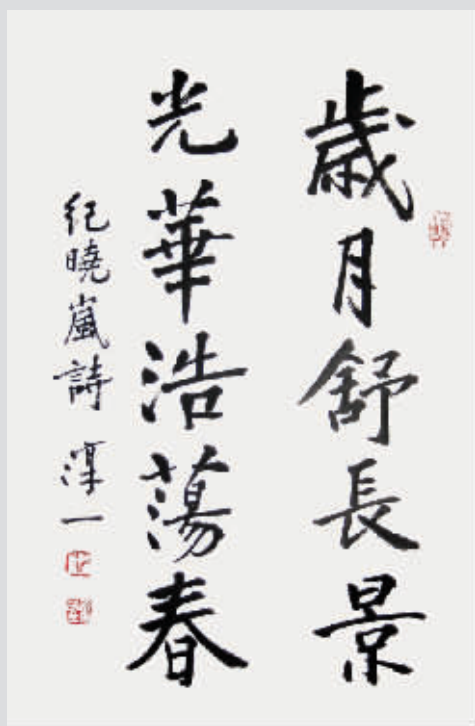 歳月舒長景
光華浩蕩春
紀曉嵐詩 淳一